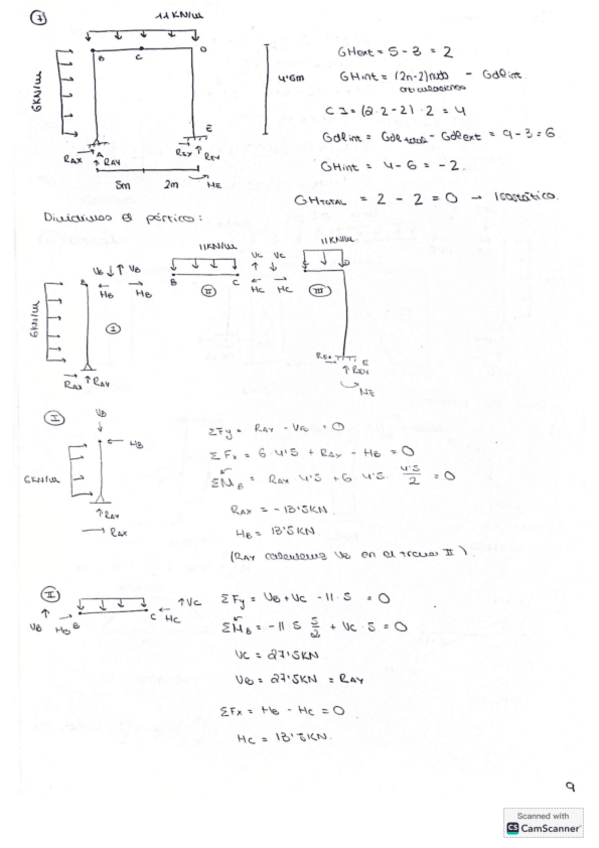 7
11 KN/m
B C D
GHext = 5 - 3 = 2
6KN/m
4'5m
GHint = (2n-2) nudo - Gdl int
articulaciones
CI = (2·2-2)·2 = 4
E
Gdl int = Gdl total - Gdl ext = 9 - 3 = 6
RAX A RAY REX REY
GHint = 4 - 6 = -2.
5m 2m ME
GHTOTAL = 2 - 2 = 0 → Isostático.
Dividimos el pórtico:
11KN/m 11KN/m
VB VB VC VC
HB HB B C HC HC D
II III
6KN/m I
REX E
REY
RAX RAY
ME
I VB
HB
6KN/m
RAY
RAX
ΣFy = RAY - VB = 0
ΣFx = 6·4'5 + RAX - HB = 0
ΣMB = RAX·4'5 + 6·4'5·4'5/2 = 0
RAX = -13'5KN
HB = 13'5KN
(RAY calculamos VB en el tramo II).
II
VB HB B C VC HC
ΣFy = VB + VC - 11·5 = 0
ΣMB = -11·5·5/2 + VC·5 = 0
VC = 27'5KN
VB = 27'5KN = RAY
ΣFx = HB - HC = 0
HC = 13'5KN.
9
Scanned with
CS CamScanner